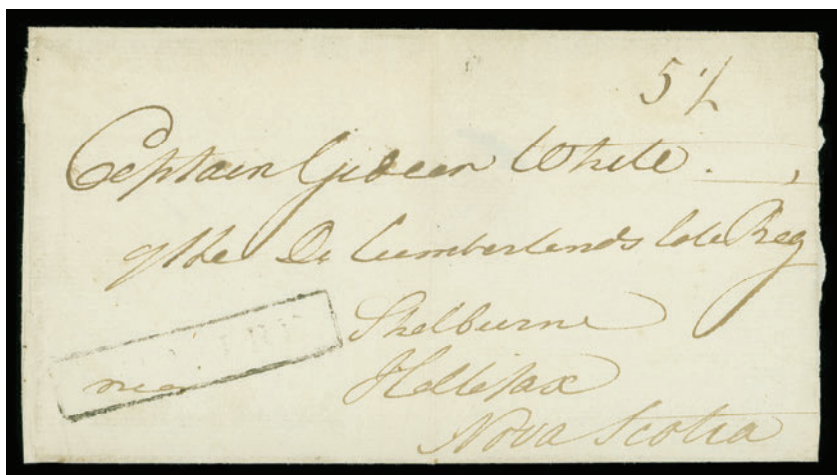 5/
Captain Gideon White.
of the D: Cumberlands late Reg
Shelburne
near Hallifax
Nova Scotia